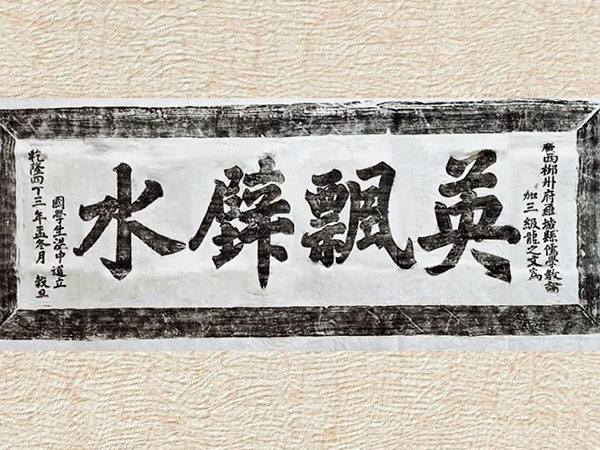 廣西柳州府羅城縣儒學教諭
加三級龍之文為
英飄璧水
國學生梁中道立
乾隆四十三年孟冬月 穀旦